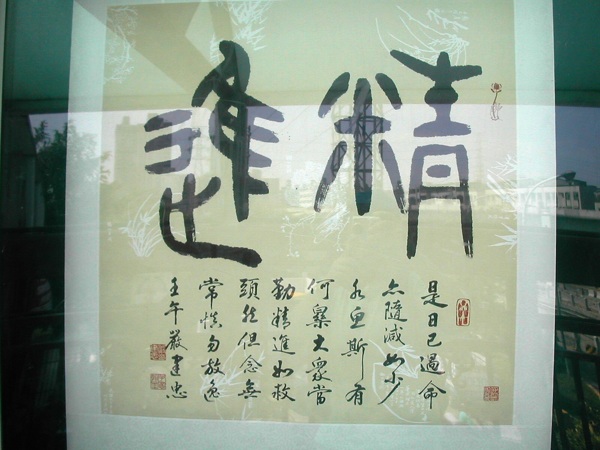 精進
是日已過命
亦隨減如少
水魚斯有
何樂大眾當
勤精進如救
頭然但念無
常慎勿放逸
壬午嚴建忠